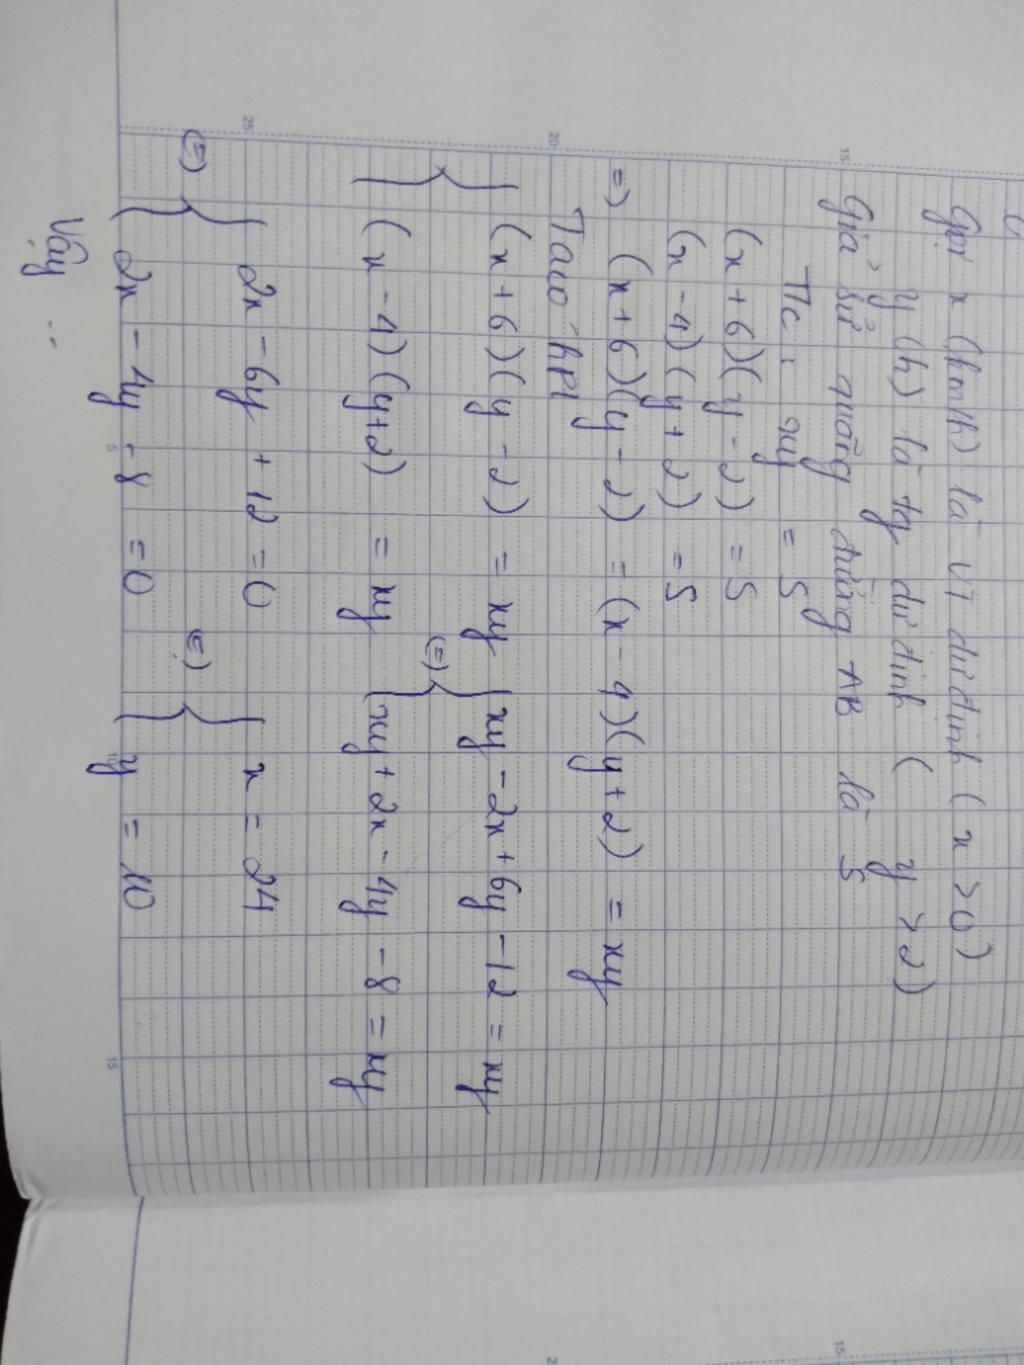 Gọi x (km/h) là VT dự định (x > 0)
y (h) là tg dự định ( y > 2)
Giả sử quãng đường AB là S
Tlc : xy = S
(x + 6)(y - 2) = S
(x - 4)(y + 2) = S
=) (x + 6)(y - 2) = (x - 4)(y + 2) = xy
Ta có hpt
{ (x + 6)(y - 2) = xy
(x - 4)(y + 2) = xy
(=) { xy - 2x + 6y - 12 = xy
xy + 2x - 4y - 8 = xy
(=) { 2x - 6y + 12 = 0
2x - 4y - 8 = 0
(=) { x = 24
y = 10
Vậy ...
25
20
15
5
10
15
15
2